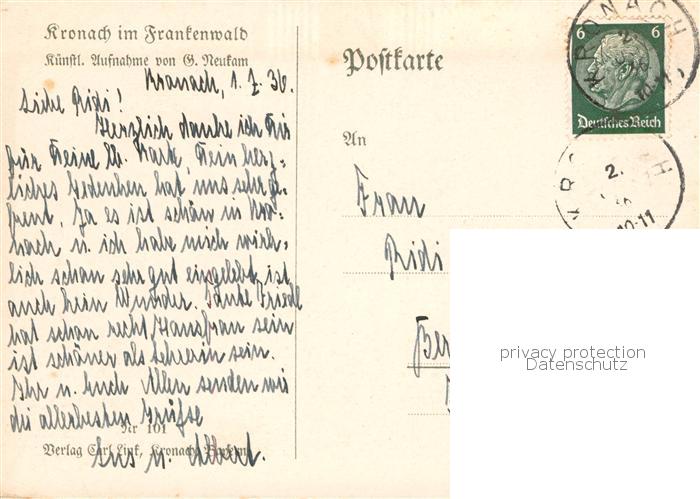 Kronach im Frankenwald
Künstl. Aufnahme von G. Neukam
Kronach, 1. 7. 36.
Liebe Ridi!
Herzlich danke ich Dir
für Deine lb. Karte, Dein herz-
liches Gedenken hat uns sehr ge-
freut. Ja es ist schön in Kro-
nach u. ich habe mich wirk-
lich schon sehr gut eingelebt, ist
auch kein Wunder. Tante Friedl
hat schon recht, Hausfrau sein
ist schöner als Lehrerin sein.
Ihr u. Euch Allen senden wir
die allerbesten Grüße
Nr 101
Verlag Carl Link, Kronach, Bayern
u. Albert.
Postkarte
An
Frau
Ridi
Ber
6 6
Deutsches Reich
KRONACH
2.
10-11
KRO H
2.
10-11
privacy protection
Datenschutz